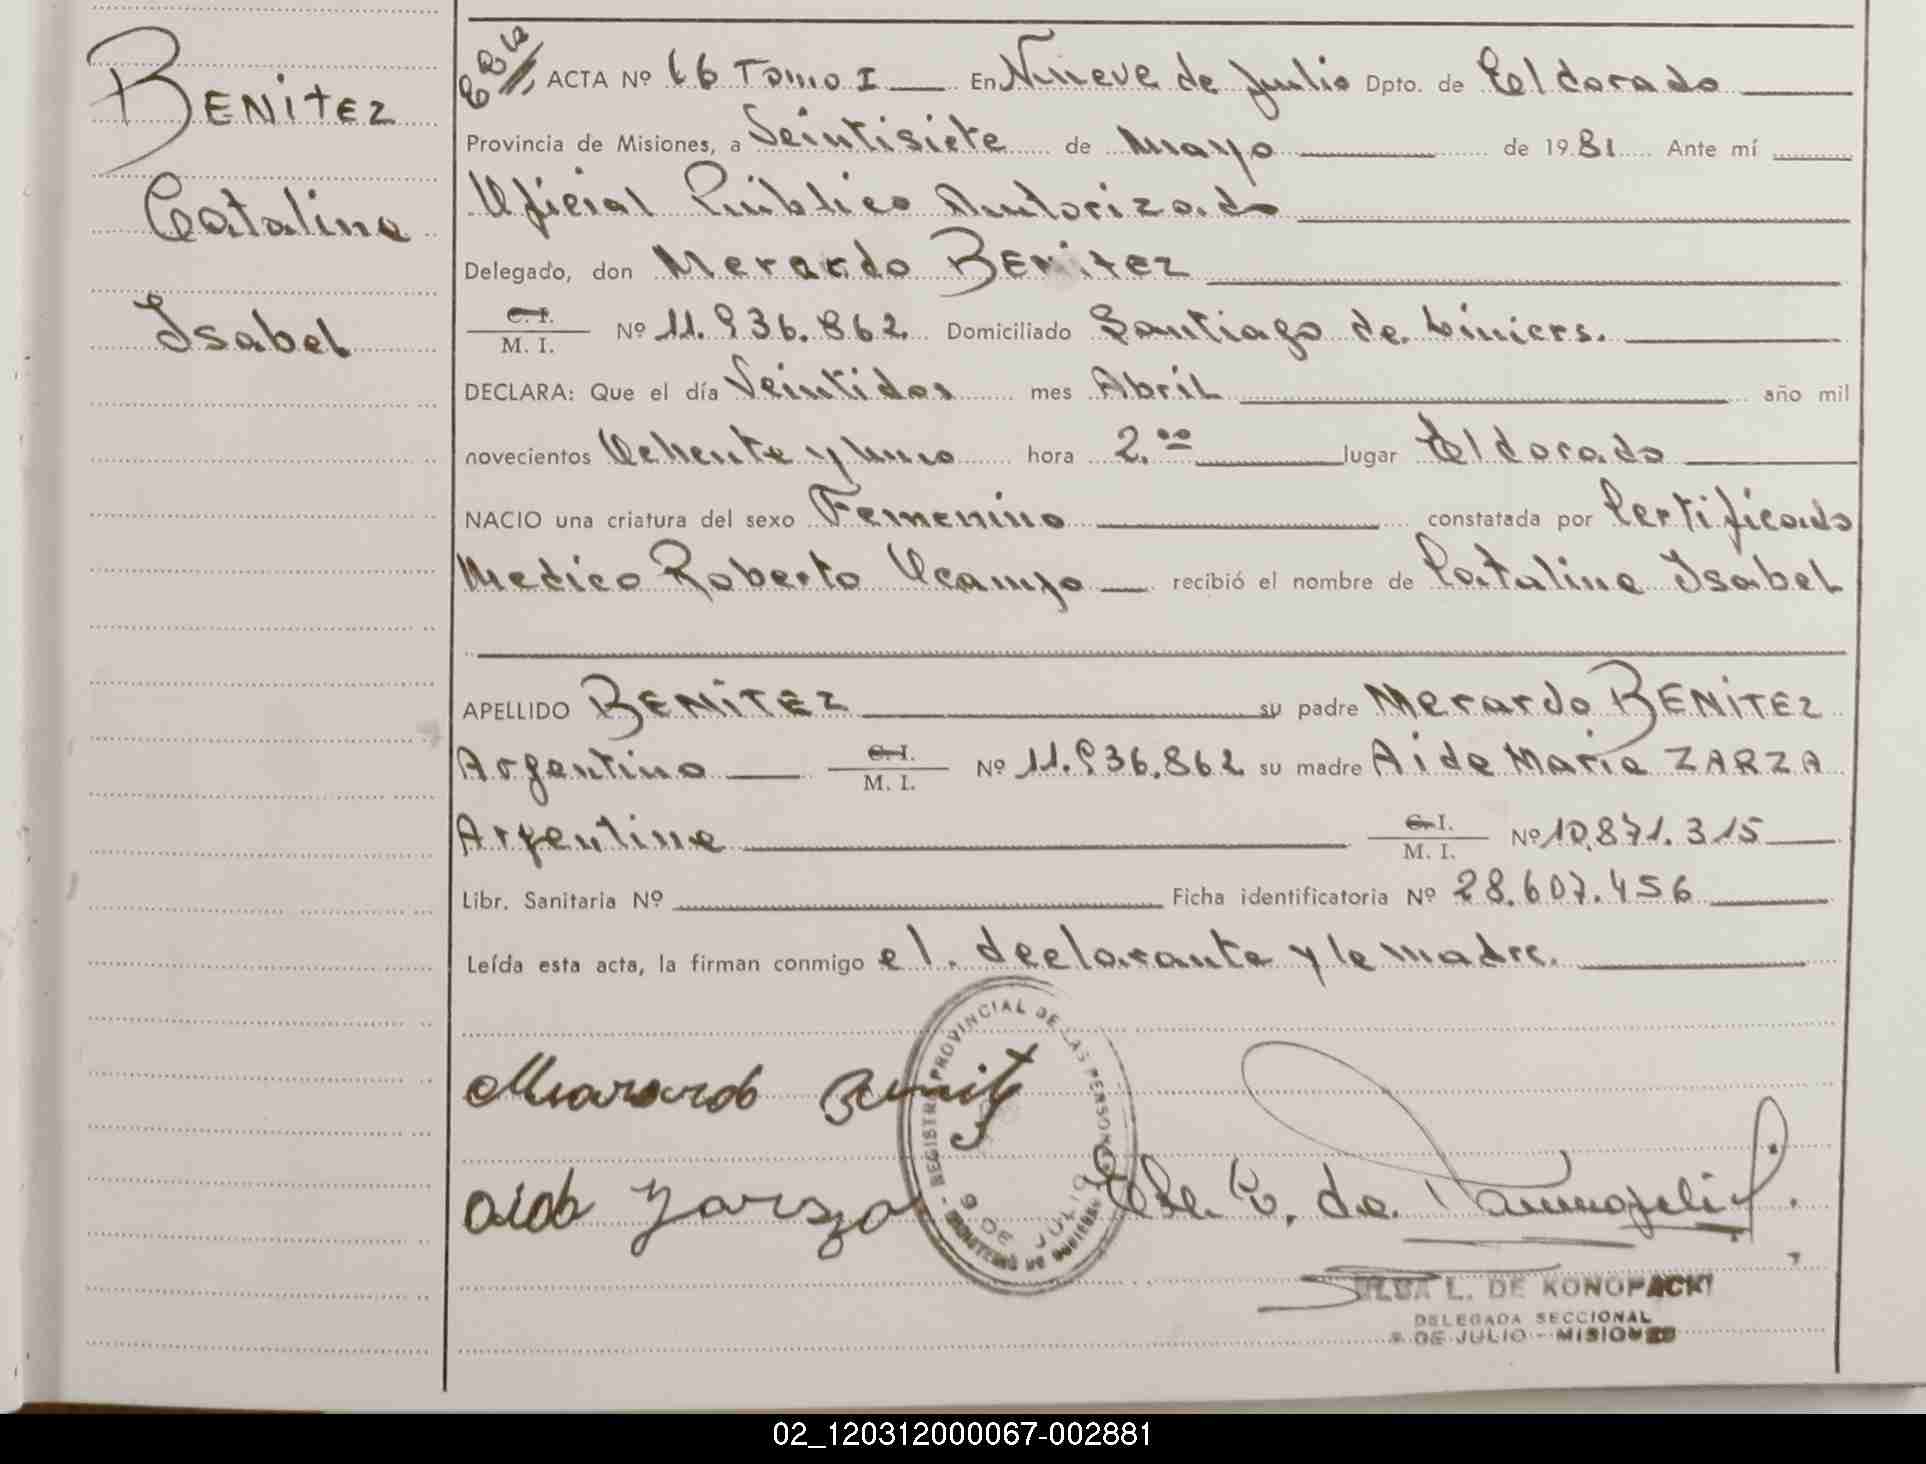 BENITEZ
Catalina
Isabel
ACTA Nº 66 Tomo I En Nueve de Julio Dpto. de Eldorado
Provincia de Misiones, a Veintisiete de mayo de 1981 Ante mí
Oficial Público Autorizado
Delegado, don Merardo BENITEZ
C. I.
M. I. Nº 11.936.862 Domiciliado Santiago de Liniers.
DECLARA: Que el día Veintidos mes Abril año mil
novecientos Ochenta y uno hora 2.00 lugar Eldorado
NACIO una criatura del sexo Femenino constatada por Certificado
Medico Roberto Ocampo recibió el nombre de Catalina Isabel
APELLIDO BENITEZ su padre Merardo BENITEZ
Argentino C. I. M. I. Nº 11.936.862 su madre Aide Maria ZARZA
Argentina C. I. M. I. Nº 10.871.315
Libr. Sanitaria Nº Ficha identificatoria Nº 28.607.456
Leída esta acta, la firman conmigo el declarante y la madre.
REGISTRO PROVINCIAL DE LAS PERSONAS
9 DE JULIO
MINISTERIO DE GOBIERNO
Merardo Benit
Aide Zarza
L. DE KONOPACKI
DELEGADA SECCIONAL
9 DE JULIO - MISIONES
02_120312000067-002881